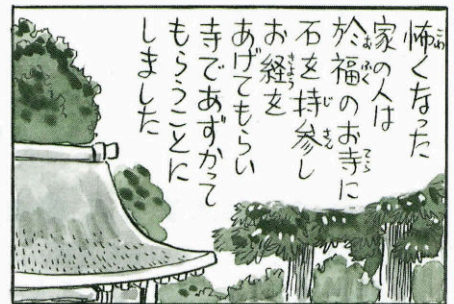 怖くなった
家の人は
於福のお寺に
石を持参し
お経を
あげてもらい
寺であずかって
もらうことに
しました